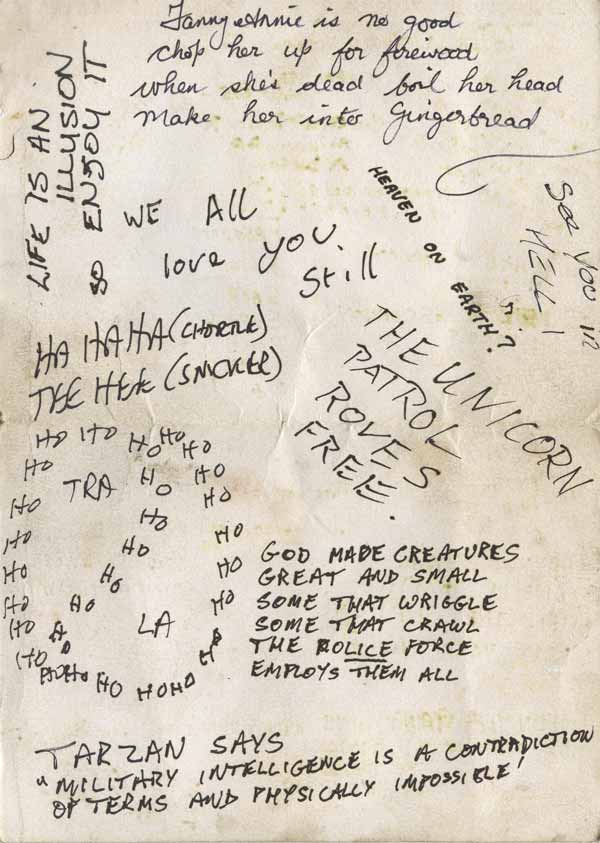 Fanny Annie is no good
chop her up for firewood
when she's dead boil her head
Make her into Gingerbread
LIFE IS AN
ILLUSION
SO ENJOY IT
WE All
love you.
Still
HEAVEN ON EARTH?
See you in
HELL!
HA HA HA (CHORTLE)
TEE HEE (SMOKER)
THE UNICORN
PATROL
ROVES
FREE.
HO HO HO HO
HO HO HO
HO TRA HO HO
HO HO
HO HO
HO HO HO
HO HO
HO HO HO
HO LA
HO HO
HO HO HO
HOHO HO HOHO
GOD MADE CREATURES
GREAT AND SMALL
SOME THAT WRIGGLE
SOME THAT CRAWL
THE POLICE FORCE
EMPLOYS THEM ALL
TARZAN SAYS
"MILITARY INTELLIGENCE IS A CONTRADICTION
OF TERMS AND PHYSICALLY IMPOSSIBLE'